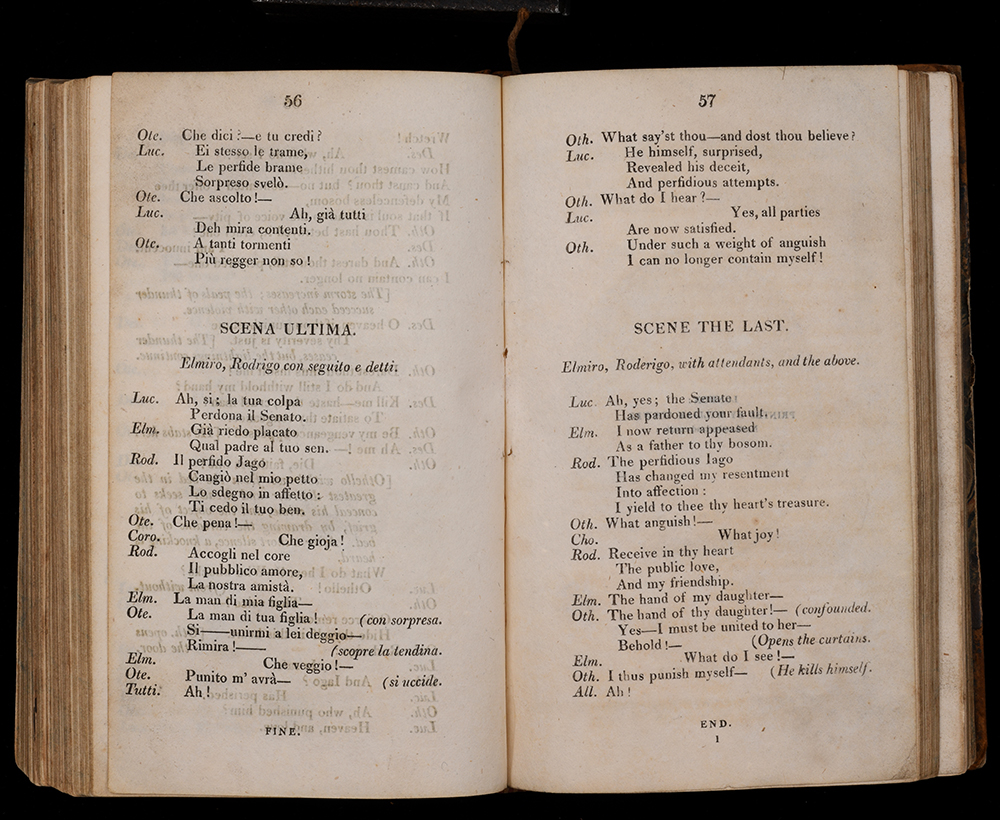 56
Ote. Che dici?—e tu credi?
Luc. Ei stesso le trame,
Le perfide brame
Sorpreso svelò.
Ote. Che ascolto!—
Luc. Ah, già tutti
Deh mira contenti.
Ote. A tanti tormenti
Più regger non so!
SCENA ULTIMA.
Elmiro, Rodrigo con seguito e detti.
Luc. Ah, si; la tua colpa
Perdona il Senato.
Elm. Già riedo placato
Qual padre al tuo sen.
Rod. Il perfido Jago
Cangiò nel mio petto
Lo sdegno in affetto:
Ti cedo il tuo ben.
Ote. Che pena!—
Coro. Che gioja!
Rod. Accogli nel core
Il pubblico amore,
La nostra amistà.
Elm. La man di mia figlia—
Ote. La man di tua figlia! (con sorpresa.
Si——unirmi a lei deggio—
Rimira!—— (scopre la tendina.
Elm. Che veggio!—
Ote. Punito m' avrà— (si uccide.
Tutti. Ah!
FINE.
57
Oth. What say'st thou—and dost thou believe?
Luc. He himself, surprised,
Revealed his deceit,
And perfidious attempts.
Oth. What do I hear?—
Luc. Yes, all parties
Are now satisfied.
Oth. Under such a weight of anguish
I can no longer contain myself!
SCENE THE LAST.
Elmiro, Roderigo, with attendants, and the above.
Luc. Ah, yes; the Senate
Has pardoned your fault.
Elm. I now return appeased
As a father to thy bosom.
Rod. The perfidious Iago
Has changed my resentment
Into affection:
I yield to thee thy heart's treasure.
Oth. What anguish!—
Cho. What joy!
Rod. Receive in thy heart
The public love,
And my friendship.
Elm. The hand of my daughter—
Oth. The hand of thy daughter!— (confounded.
Yes—I must be united to her—
Behold!— (Opens the curtains.
Elm. What do I see!—
Oth. I thus punish myself— (He kills himself.
All. Ah!
END.
1